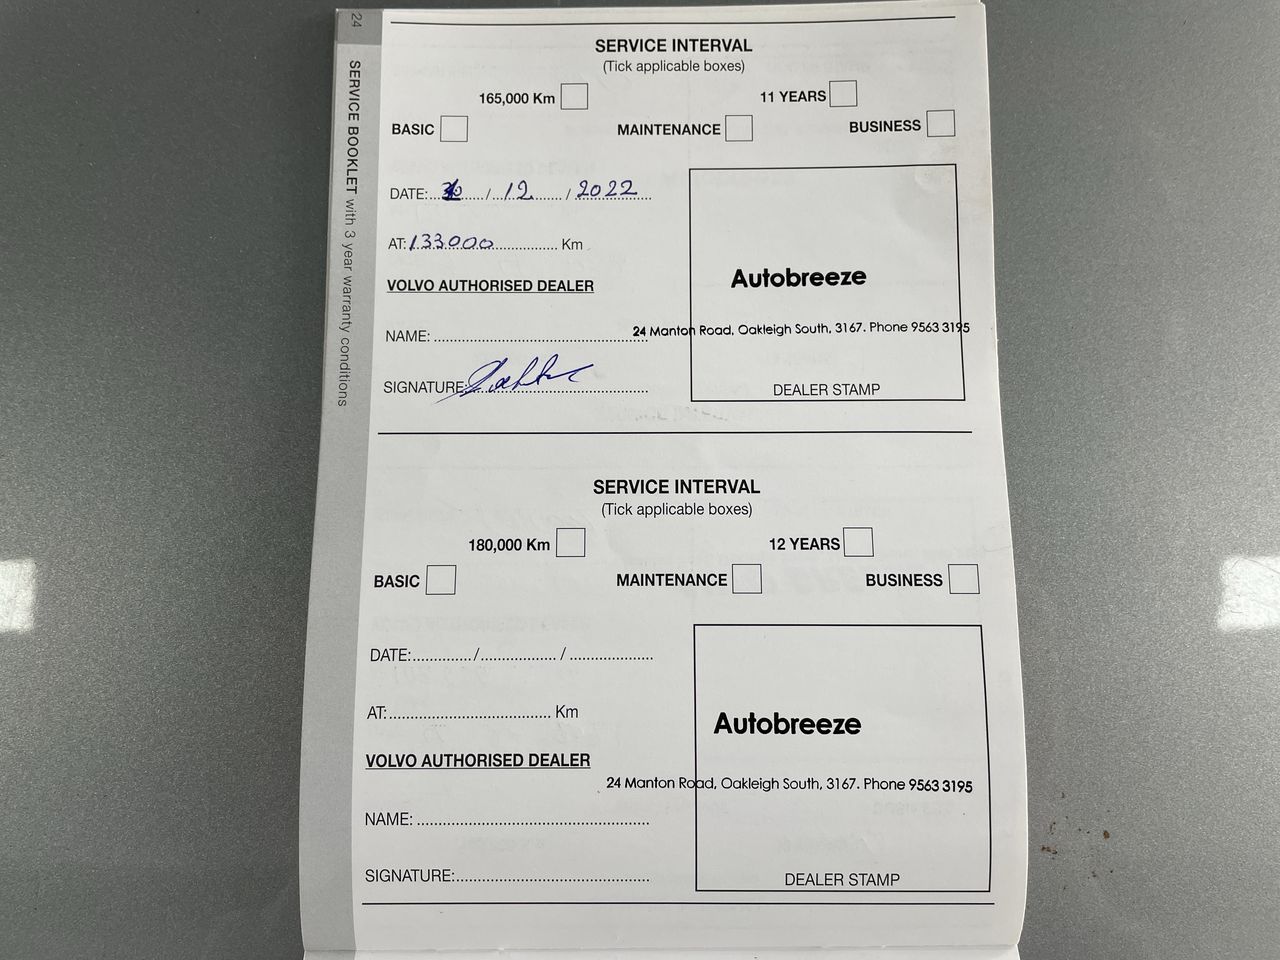 24
SERVICE BOOKLET with 3 year warranty conditions
SERVICE INTERVAL
(Tick applicable boxes)
165,000 Km 11 YEARS
BASIC MAINTENANCE BUSINESS
DATE:......../ 12 / 2022
AT: 133000 Km
VOLVO AUTHORISED DEALER
NAME:
SIGNATURE:
Autobreeze
24 Manton Road, Oakleigh South, 3167. Phone 9563 3195
DEALER STAMP
SERVICE INTERVAL
(Tick applicable boxes)
180,000 Km 12 YEARS
BASIC MAINTENANCE BUSINESS
DATE:............./................../....................
AT:..................................... Km
VOLVO AUTHORISED DEALER
NAME:
SIGNATURE:
Autobreeze
24 Manton Road, Oakleigh South, 3167. Phone 9563 3195
DEALER STAMP